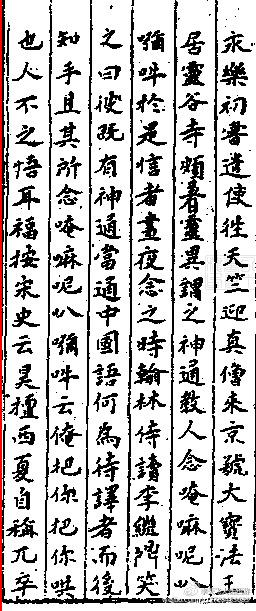 永樂初嘗遣使徃天竺迎真僧来京號大寶法王
居靈谷寺頗著靈異謂之神通教人念唵嘛呢叭
𡄣吽於是信者晝夜念之時翰林侍讀李繼鼎笑
之曰彼既有神通當通中國語何為待譯者而後
知乎且其所念唵嘛呢叭𡄣吽云俺把你把你哄
也人不之悟耳福按宋史云昊種西夏自稱兀卒